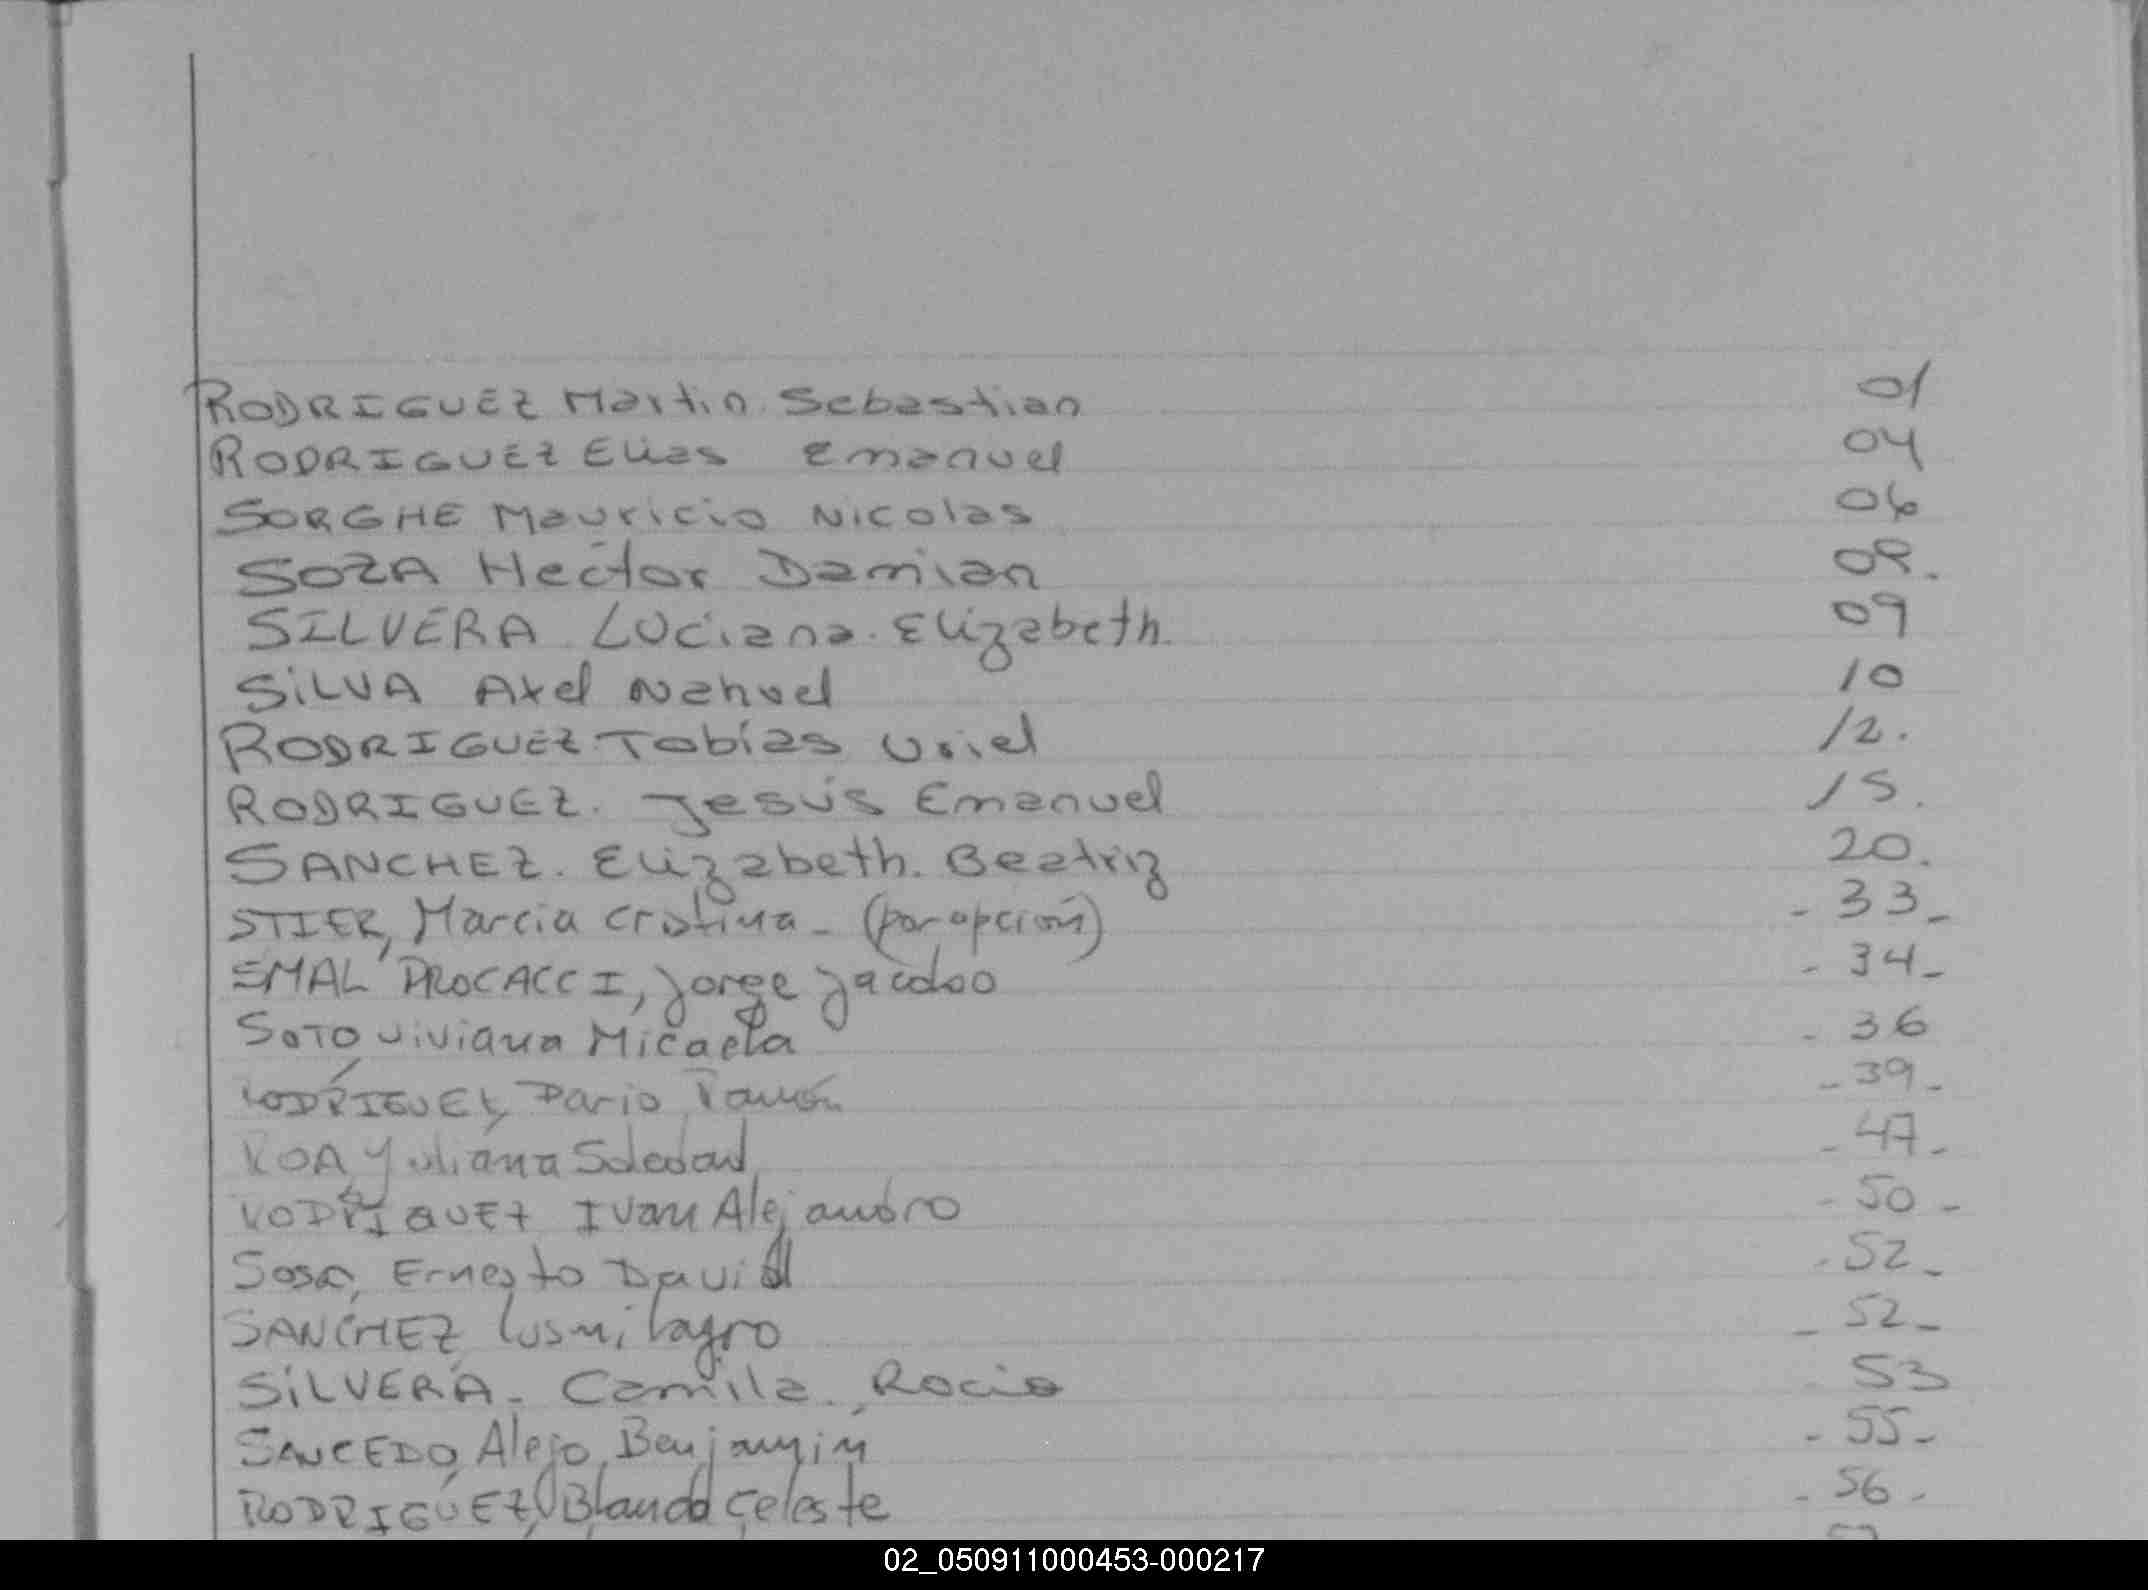 RODRIGUEZ Martin Sebastian 01
RODRIGUEZ Elias Emanuel 04
SORGHE Mauricio Nicolas 06
SOZA Hector Damian 08.
SILVERA Luciana. Elizabeth. 09
SiLVA Axel Nahuel 10
RODRIGUEZ Tobías Uriel 12.
RODRIGUEZ. Jesús Emanuel 15.
SANCHEZ. Elizabeth. Beatriz 20.
STIER, Marcia Cristina - (por opción) - 33 -
EMAL PROCACCI, Jorge Jacobo - 34 -
SOTO Viviana Micaela - 36
RODRIGUEZ, Dario Ramón - 39 -
ROA, Yuliana Soledad - 47 -
RODRIGUEZ Ivan Alejandro - 50 -
Sosa, Ernesto David - 52 -
SANCHEZ Lusmilagro - 52 -
SiLVERA - Camila. Rocio 53
SAUCEDO, Alejo Benjamín - 55 -
RODRIGUEZ, Celeste - 56 -
02_050911000453-000217